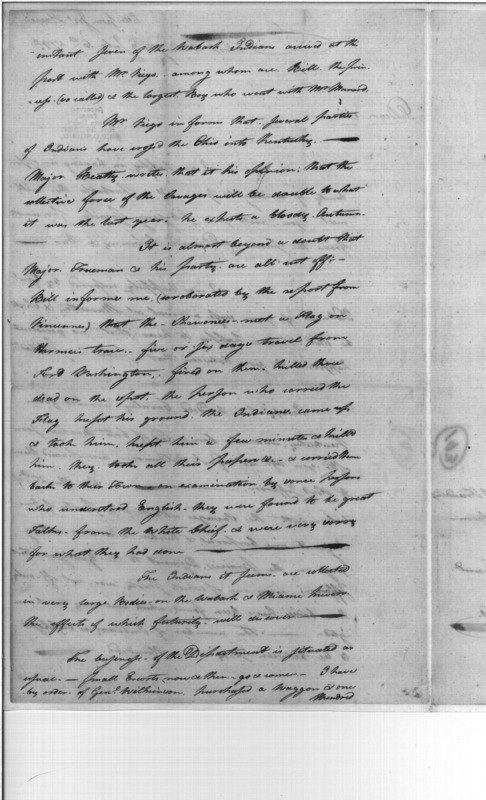 instant seven of the Wabash Indians arrived at the
post with Mr Vigo. among whom are. Bill. the
(so called) & the largest Boy who went with Mr
Mr. Vigo informs that. several parties
of Indians have cross'd the Ohio into Kentucky. —
Major Beatty writes that it his opinion; that the
collective force of the Savages will be double to what
it was the last year. he expects a bloody Autumn.
It is almost beyond a doubt that
Major. Trueman & his party. are all cut off. –
Bill informs me, (corroborated by the report from
Vincennes) that the Shawnees met a Flag on
Harmers trace. five or six days travel from
Ford Washington. fired on them. killed three
dead on the spot. the person who carried the
Flag kept his ground. the Indians came up
& took him. kept him a few minutes & killd
him. they took all their papers &c. & carried them
back to their Town — on examination by some persons
who understood English. they were found to be great
Talks. from the White Chief. & were very sorry
for what they had done —
The Indians it seems. are collected
in very large Bodies. on the Wabash & Miami
the effects of which futurity. will discover —
The business. of the Department is situated as
usual. — Small Escorts, now & then. go & come — I have
by order. of Genl. Wilkinson, purchased a Waggon & one
Hundred